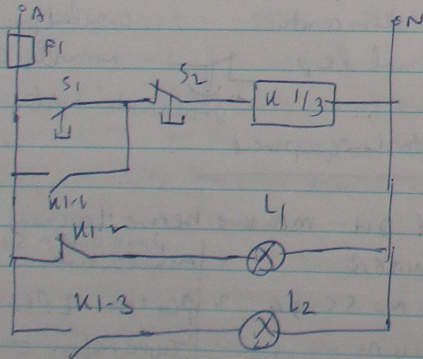 A N
F1
S1 S2
K 1/3
K1-1
K1-2 L1
K1-3 L2